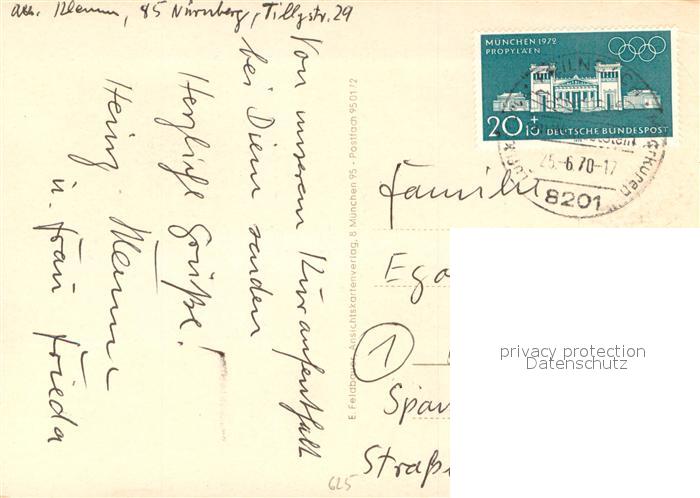 Abs. Klemm, 85 Nürnberg, Tillystr. 29
Von unserem Kuraufenthalt
bei Diem senden
Herzliche Grüße!
Heinz Klemm
u. Frau Frieda
E. Feldbauer, Ansichtskartenverlag, 8 München 95 - Postfach 950172
MÜNCHEN 1972
PROPYLÄEN
20+10 DEUTSCHE BUNDESPOST
25.-6.70-17
8201
Familie
Ego
1
Span
Straß
privacy protection
Datenschutz
625